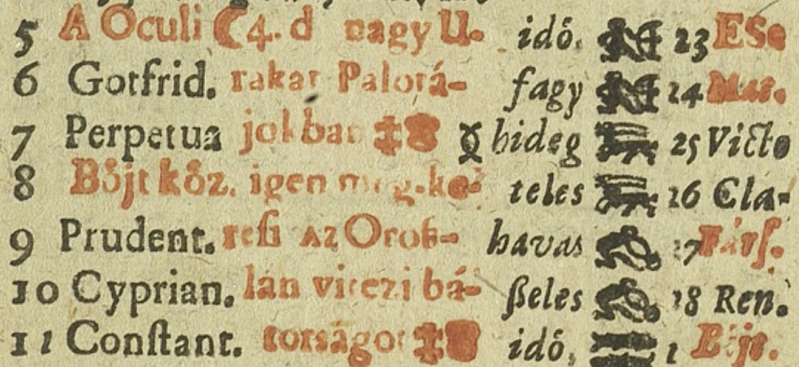 5 A Oculi ☾ 4. d nagy U- idő. 23 ESe
6 Gotfrid. rakat Palotá- fagy 24 Mat.
7 Perpetua jokban hideg 25 Victo
8 Böjt köz. igen meg-ke- teles 26 Cla-
9 Prudent. resi az Oroß- havas 27 Fárs.
10 Cyprian. lán vitezi bá- ßeles 28 Ren.
11 Constant. torságot idő, 1 Böjt.